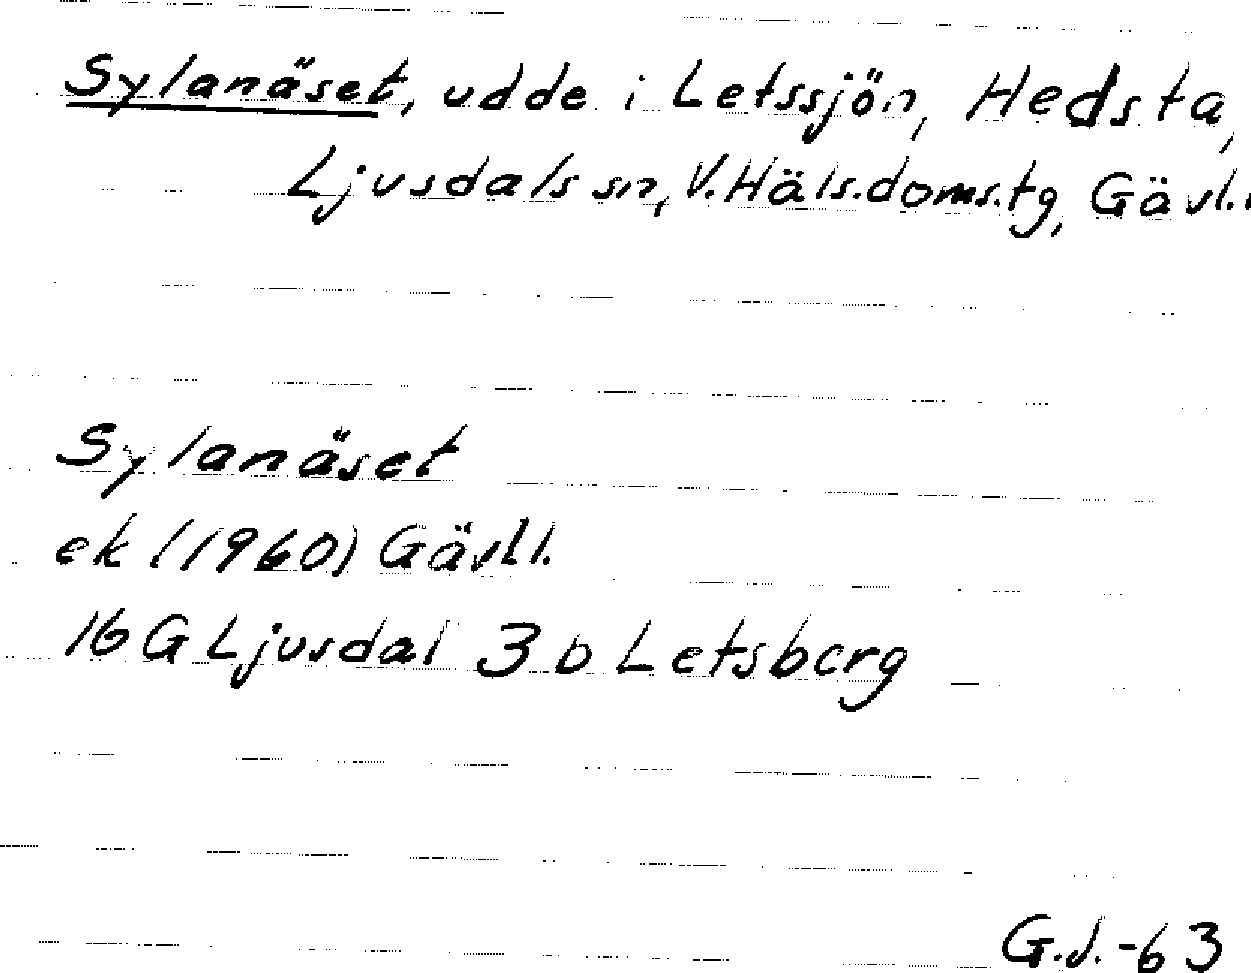 Sylanäset, udde i Letssjön, Hedsta,
Ljusdals sn, V. Häls. doms. tg, Gävl.
Sylanäset
ek (1960) Gävl l.
16 G Ljusdal 3 b Letsberg
G.J.-63